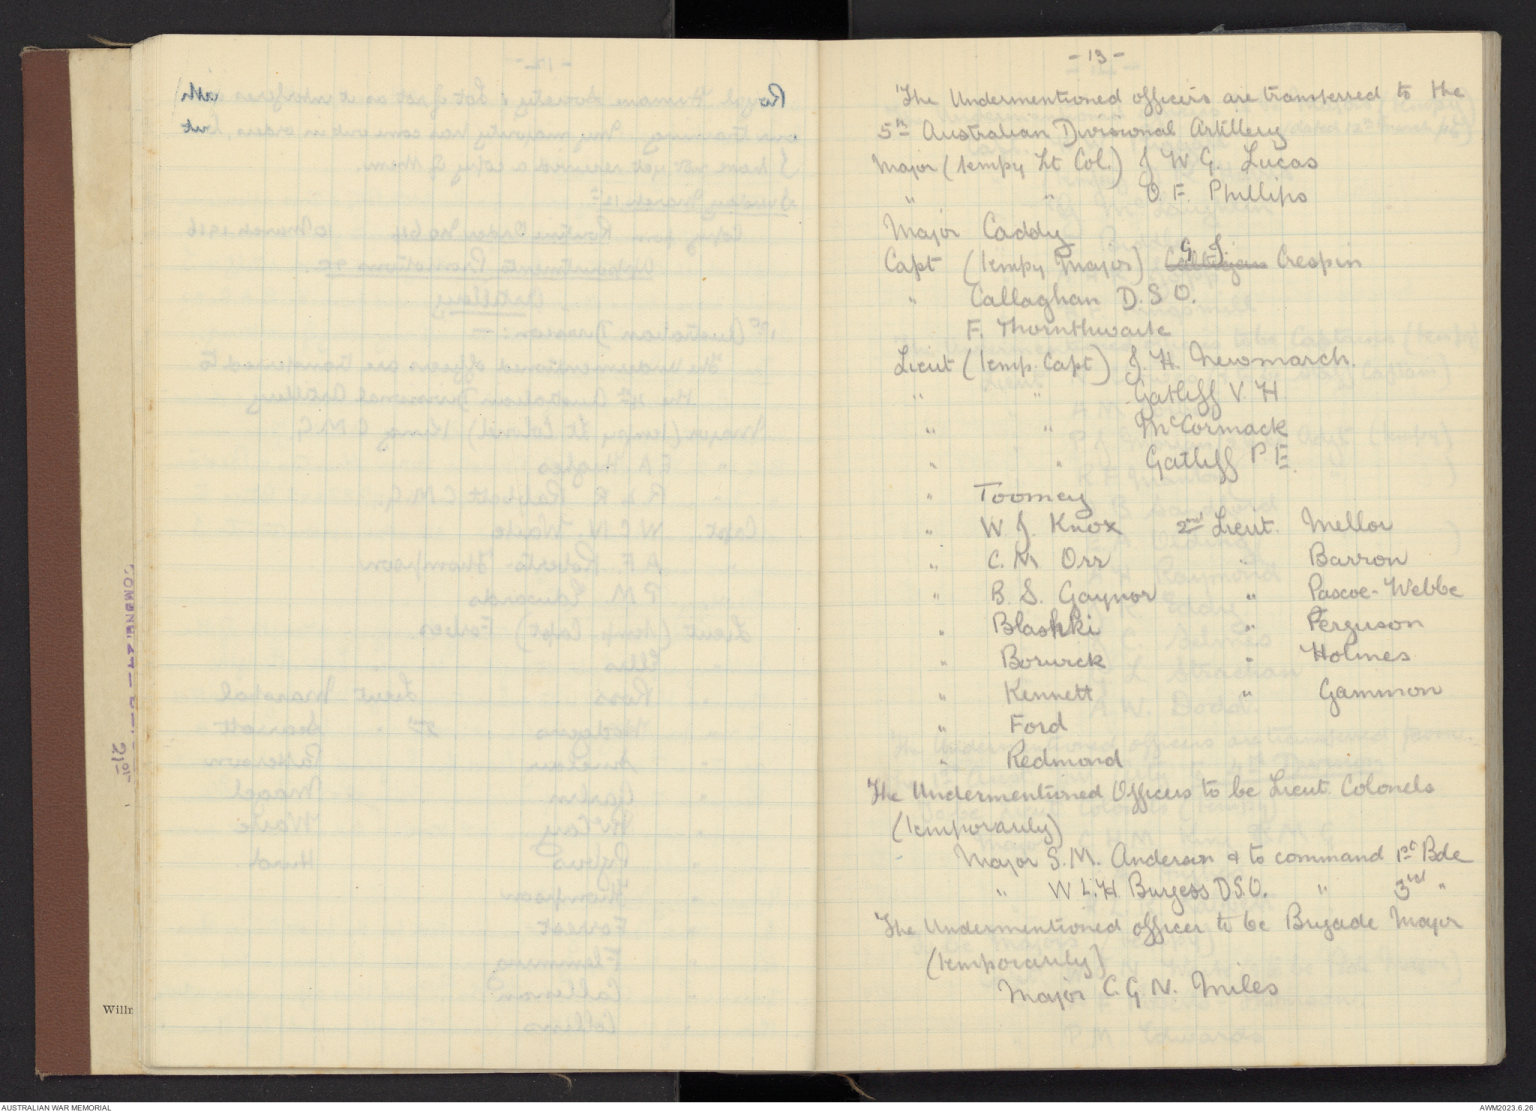 - 13 -
The Undermentioned officers are transferred to the
5th Australian Divisional Artillery
Major (tempy Lt Col.) J W G. Lucas
" " O. F. Phillips
Major Caddy
Capt (tempy Major) G. J. Crespin
" Callaghan D.S.O.
F. Thornthwaite
Lieut (temp. Capt) J. H. Newmarch.
" " Gatliff V H
" " McCormack
" " Gatliff P E.
" Toomey
" W J. Knox 2nd Lieut. Mellor
" C. M Orr " Barron
" B. S. Gaynor " Pascoe-Webbe
" Blashki " Ferguson
" Borwick " Holmes
" Kennett " Gammon
" Ford
" Redmond
The Undermentioned Officers to be Lieut. Colonels
(temporarily)
Major S.M. Anderson & to command 1st Bde
" W L.H. Burgess D.S.O. " 3rd "
The Undermentioned officer to be Brigade Major
(temporarily)
Major C. G. N. Miles
Willr
AUSTRALIAN WAR MEMORIAL
AWM2023.6.26